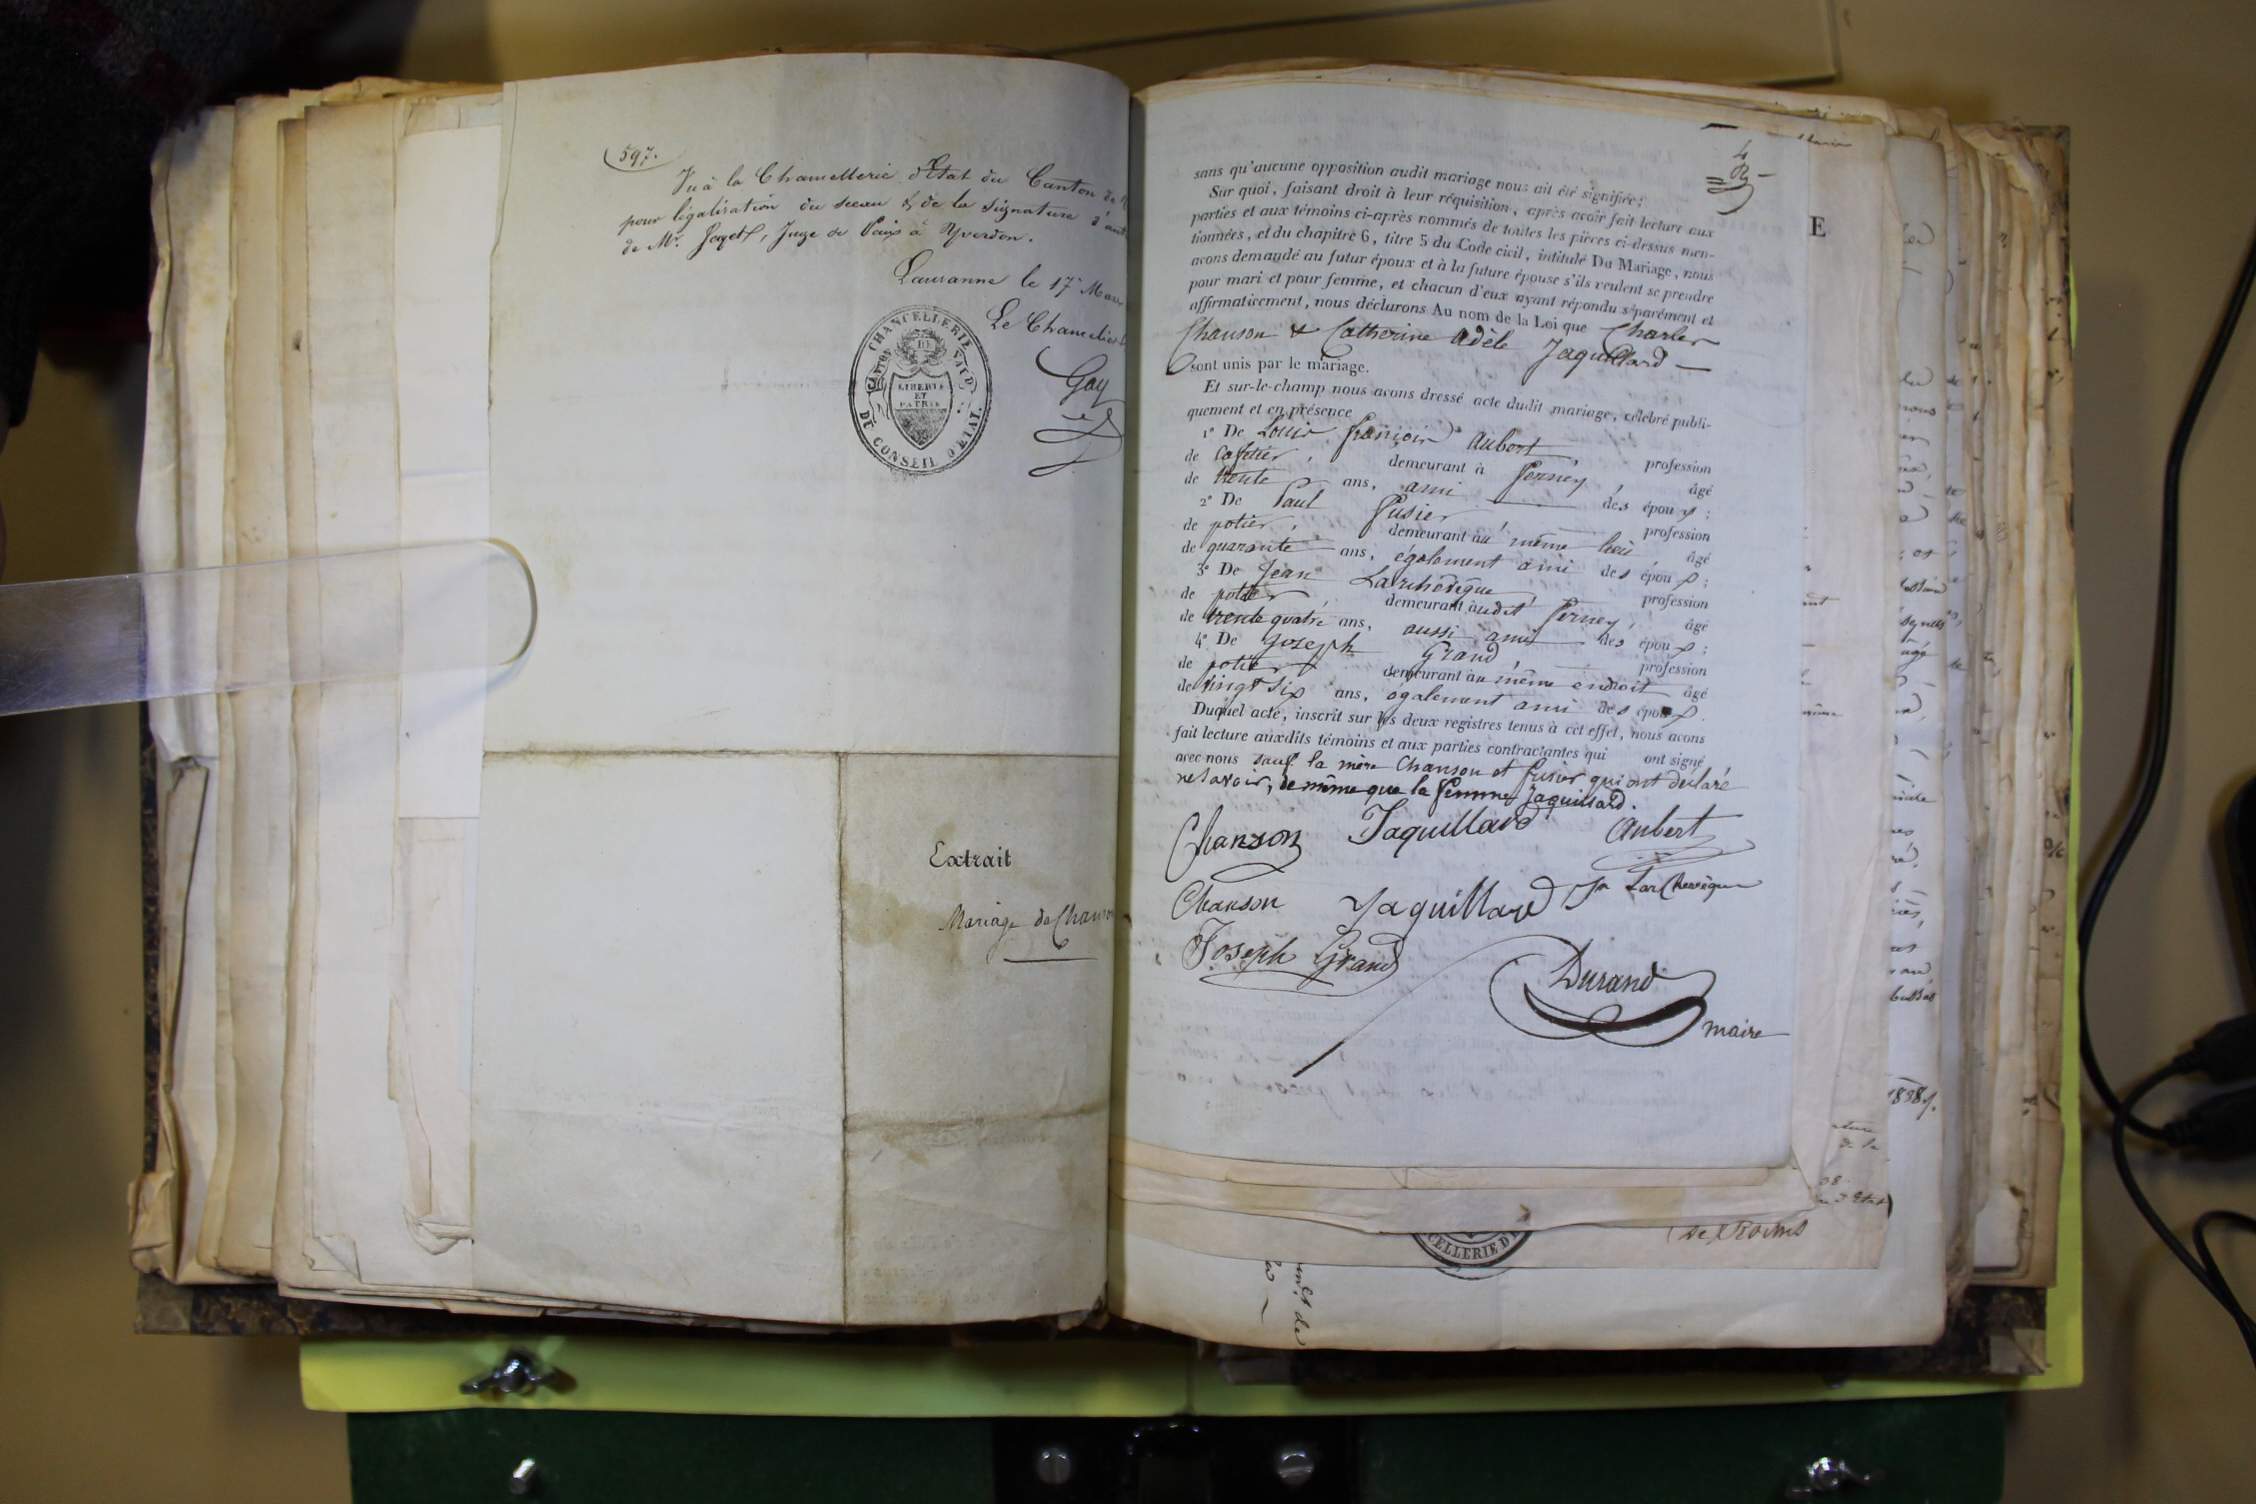 597.
Vu à la Chancellerie d'Etat du Canton de
pour légalisation du sceau & de la signature d'
de Mr. Juge de Paix à Yverdon.
Lausanne le 17 Mars
Le Chancelier
Gay
CHANCELLERIE
DU CONSEIL D'ETAT.
CANTON DE VAUD
LIBERTÉ
ET
PATRIE
Extrait
Mariage de Chanson
4
sans qu'aucune opposition audit mariage nous ait été signifiée;
Sur quoi, faisant droit à leur réquisition, après avoir fait lecture aux
parties et aux témoins ci-après nommés de toutes les pièces ci-dessus men-
tionnées, et du chapitre 6, titre 5 du Code civil, intitulé Du Mariage, nous
avons demandé au futur époux et à la future épouse s'ils veulent se prendre
pour mari et pour femme, et chacun d'eux ayant répondu séparément et
affirmativement, nous déclarons Au nom de la Loi que Charles
Chanson & Catherine Adèle Jaquillard —
sont unis par le mariage.
Et sur-le-champ nous avons dressé acte dudit mariage, célébré publi-
quement et en présence
1° De Louis François Aubert, profession
de cafetier, demeurant à Ferney, âgé
de trente ans, ami des époux;
2° De Paul Fusier profession
de potier, demeurant au même lieu âgé
de quarante ans, également ami des époux;
3° De Jean Larchevêque profession
de potier demeurant audit Ferney, âgé
de trente quatre ans, aussi ami des époux;
4° De Joseph Grand, profession
de potier demeurant au même endroit âgé
de vingt six ans, également ami des époux.
Duquel acte, inscrit sur les deux registres tenus à cet effet, nous avons
fait lecture auxdits témoins et aux parties contractantes qui ont signé
avec nous sauf la mère Chanson et Fusier qui ont déclaré
ne savoir, de même que la femme Jaquillard.
Chanson Jaquillard Aubert
Chanson Jaquillard Jn Larchevêque
Joseph Grand
Durand
maire
E
1838
de la
CELLERIE D